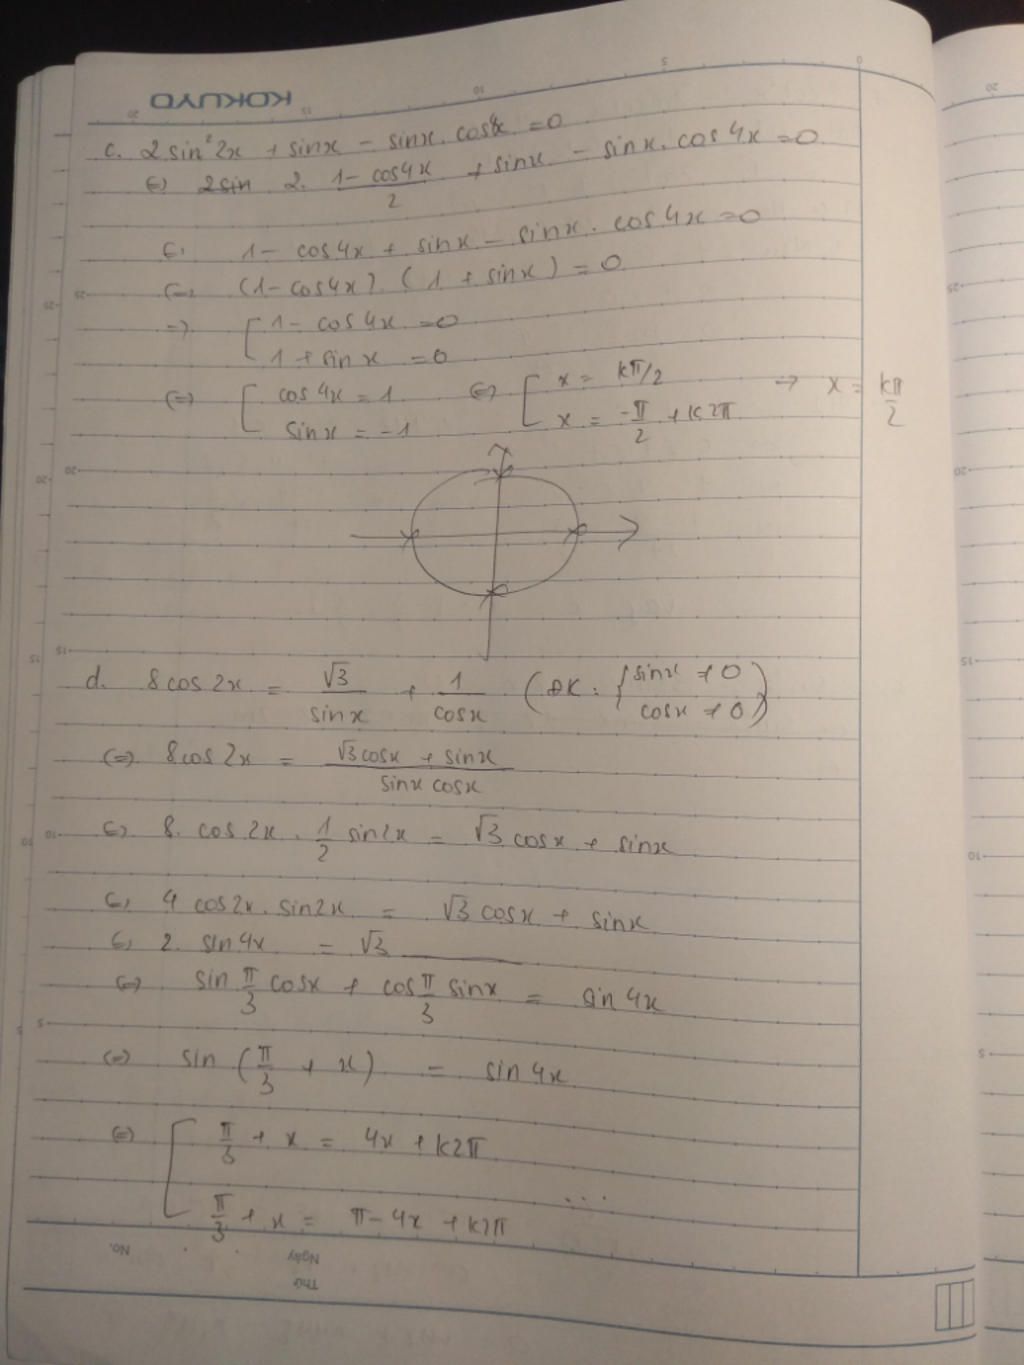 KOKUYO
c. 2 sin²2x + sinx - sinx. cos4x = 0
(=) 2sin 2. (1 - cos4x)/2 + sinx - sinx. cos4x = 0
(=) 1 - cos4x + sinx - sinx. cos4x = 0
(=) (1 - cos4x). (1 + sinx) = 0
=) [ 1 - cos4x = 0
1 + sinx = 0
(=) [ cos4x = 1 (=) [ x = kπ/2 → x = kπ/2
sinx = -1 x = -π/2 + k2π
d. 8cos2x = √3/sinx + 1/cosx (ĐK: { sinx ≠ 0
cosx ≠ 0)
(=) 8cos2x = (√3cosx + sinx)/(sinx cosx)
(=) 8. cos2x. 1/2 sin2x = √3cosx + sinx
(=) 4 cos2x. sin2x = √3cosx + sinx
(=) 2. sin4x = √3
(=) sin π/3 cosx + cos π/3 sinx = sin4x
(=) sin (π/3 + x) = sin4x
(=) [ π/3 + x = 4x + k2π
π/3 + x = π - 4x + k2π ...
No.
Ngày
Thứ